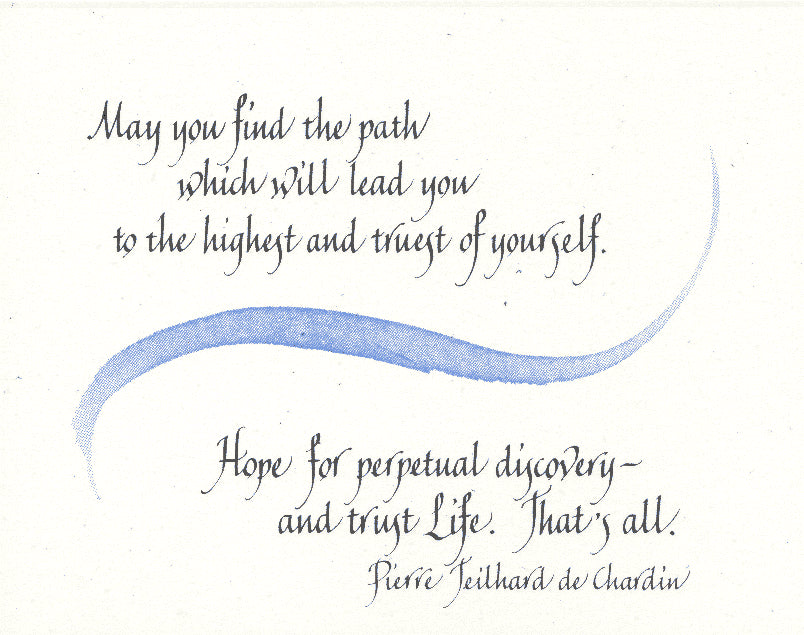 May you find the path
which will lead you
to the highest and truest of yourself.
Hope for perpetual discovery—
and trust Life. That's all.
Pierre Teilhard de Chardin